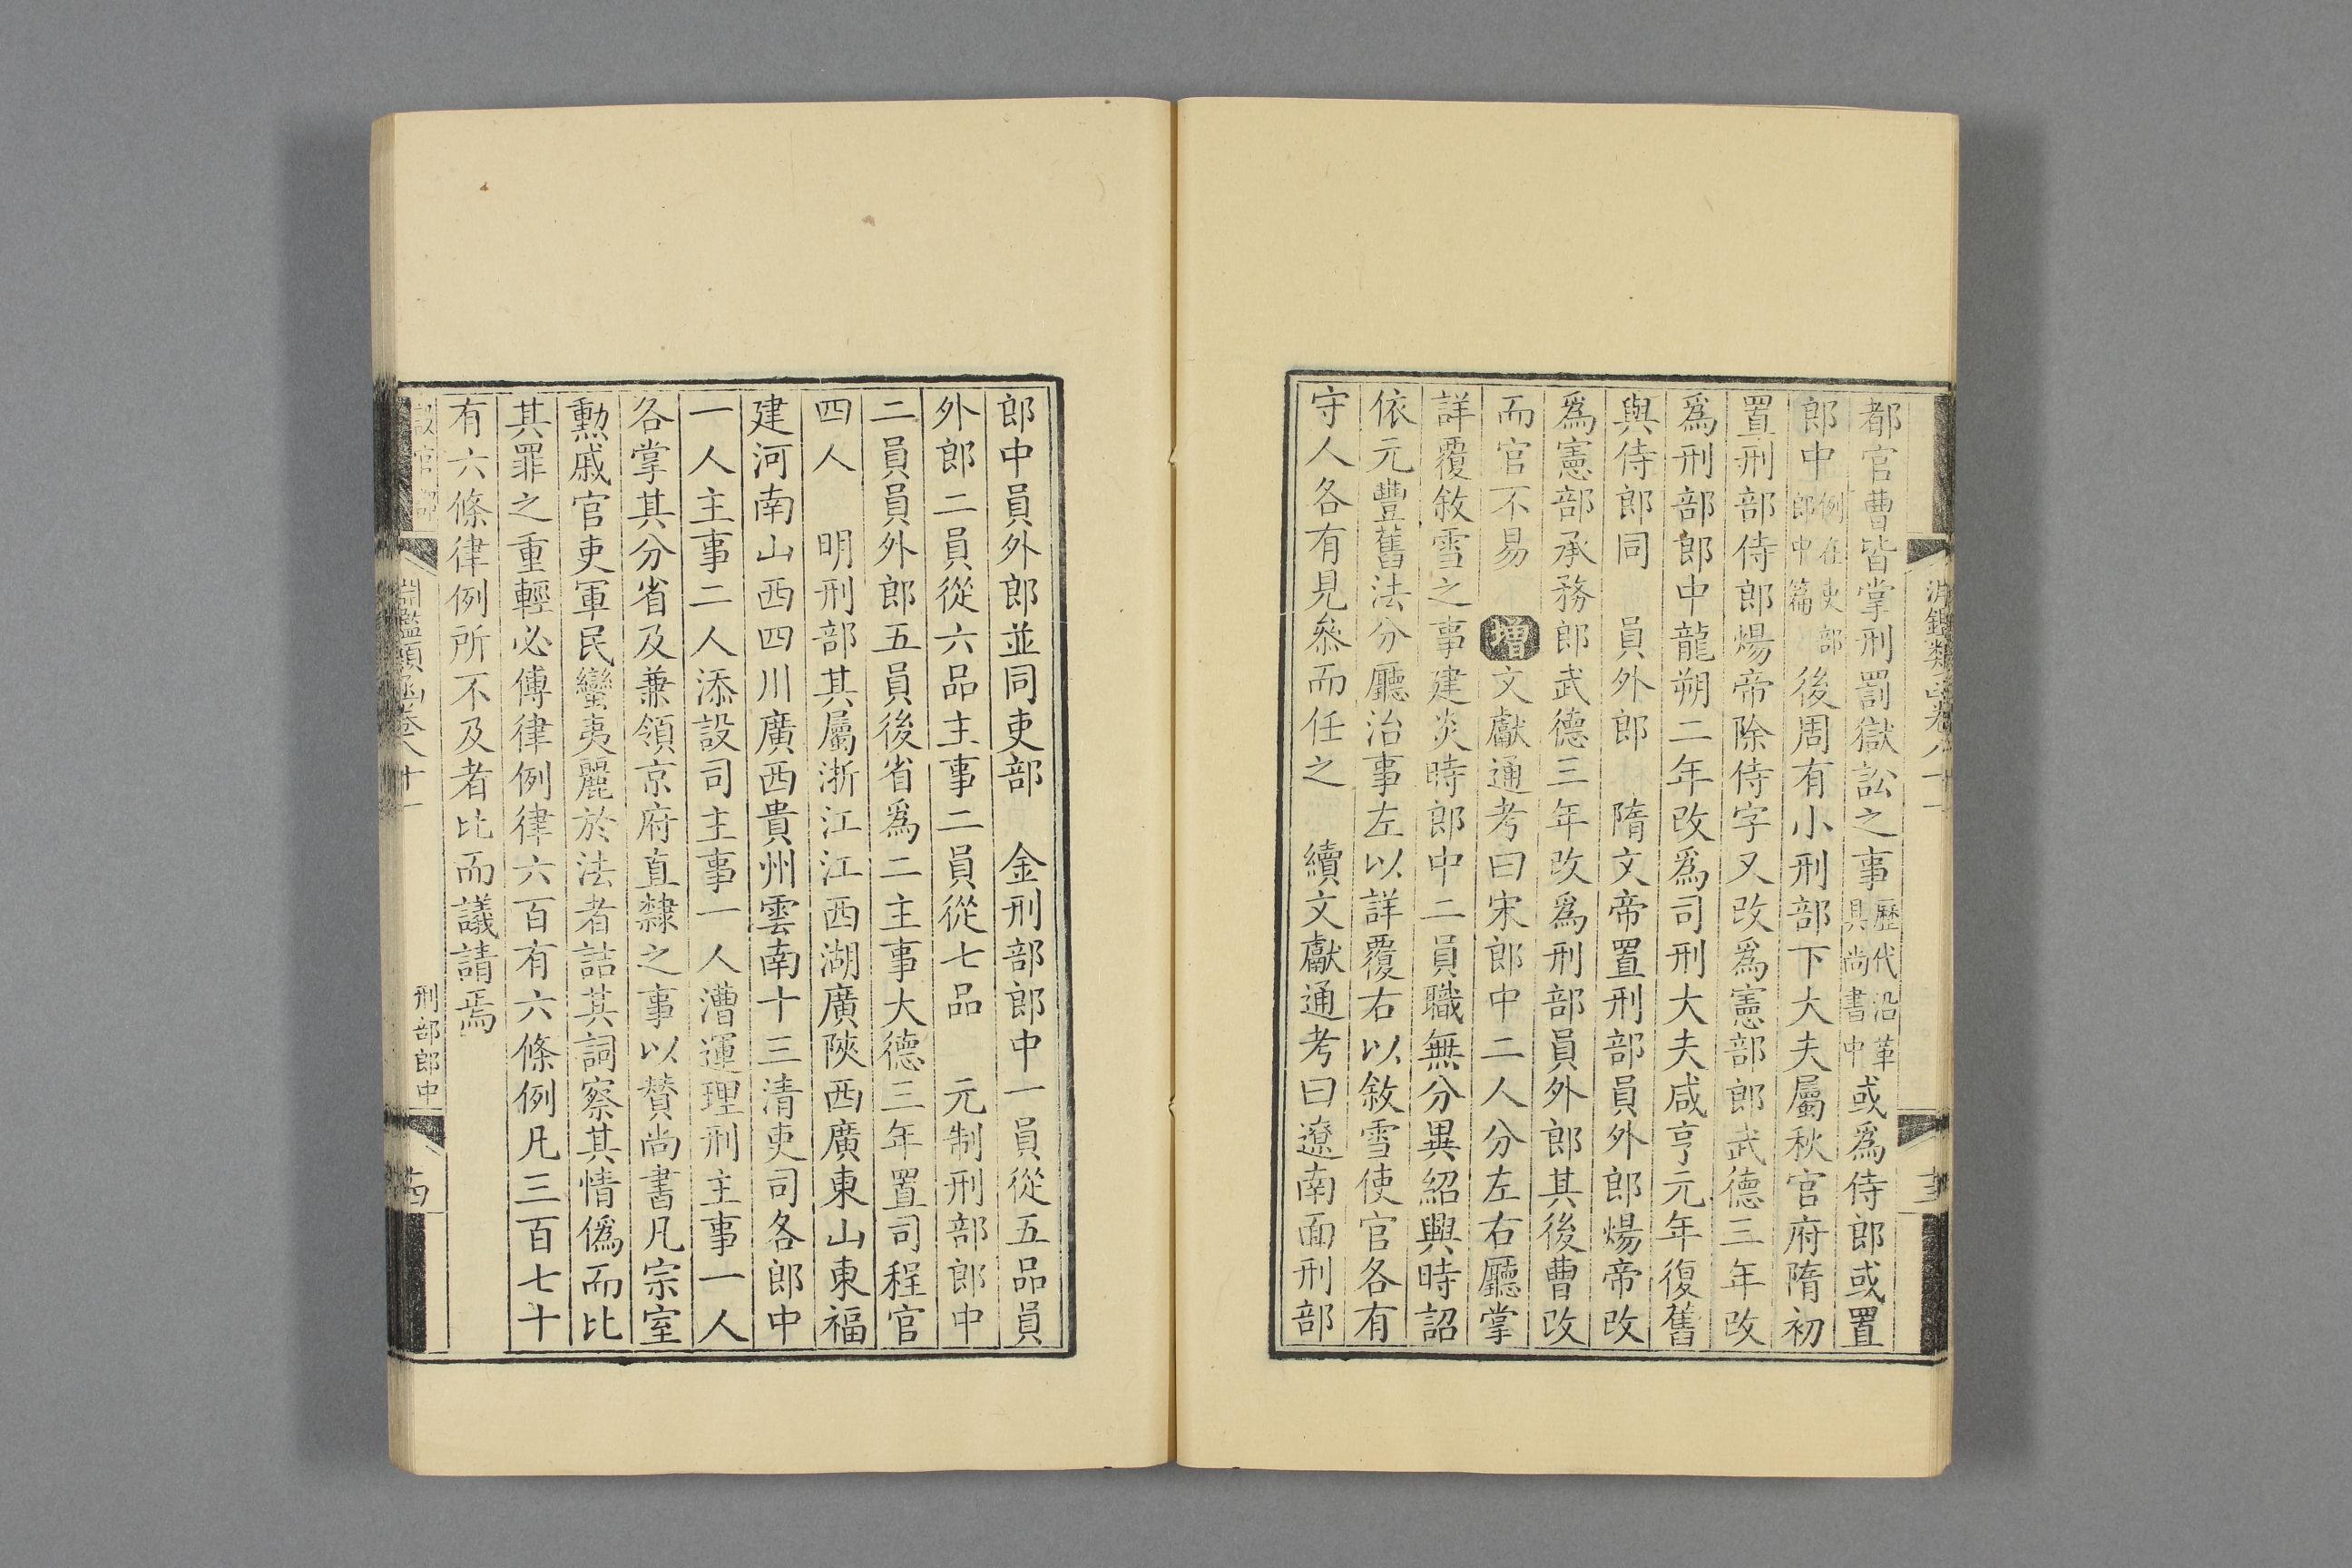 都官曹皆掌刑罰獄訟之事歷代沿革具尚書中或爲侍郎或置
郎中例在吏部郎中篇後周有小刑部下大夫屬秋官府隋初
置刑部侍郎煬帝除侍字又改爲憲部郎武德三年改
爲刑部郎中龍朔二年改爲司刑大夫咸亨元年復舊
與侍郎同 員外郎 隋文帝置刑部員外郎煬帝改
爲憲部承務郎武德三年改爲刑部員外郎其後曹改
而官不易 增文獻通考曰宋郎中二人分左右廳掌
詳覆敘雪之事建炎時郎中二員職無分異紹興時詔
依元豐舊法分廳治事左以詳覆右以敘雪使官各有
守人各有見叅而任之 續文獻通考曰遼南面刑部
郎中員外郎並同吏部 金刑部郎中一員從五品員
外郎二員從六品主事二員從七品 元制刑部郎中
二員員外郎五員後省爲二主事大德三年置司程官
四人 明刑部其屬浙江江西湖廣陝西廣東山東福
建河南山西四川廣西貴州雲南十三清吏司各郎中
一人主事二人添設司主事一人漕運理刑主事一人
各掌其分省及兼領京府直隸之事以贊尚書凡宗室
勲戚官吏軍民蠻夷麗於法者詰其詞察其情僞而比
其罪之重輕必傅律例律六百有六條例凡三百七十
有六條律例所不及者比而議請焉
淵鑑類函卷八十一
刑部郎中